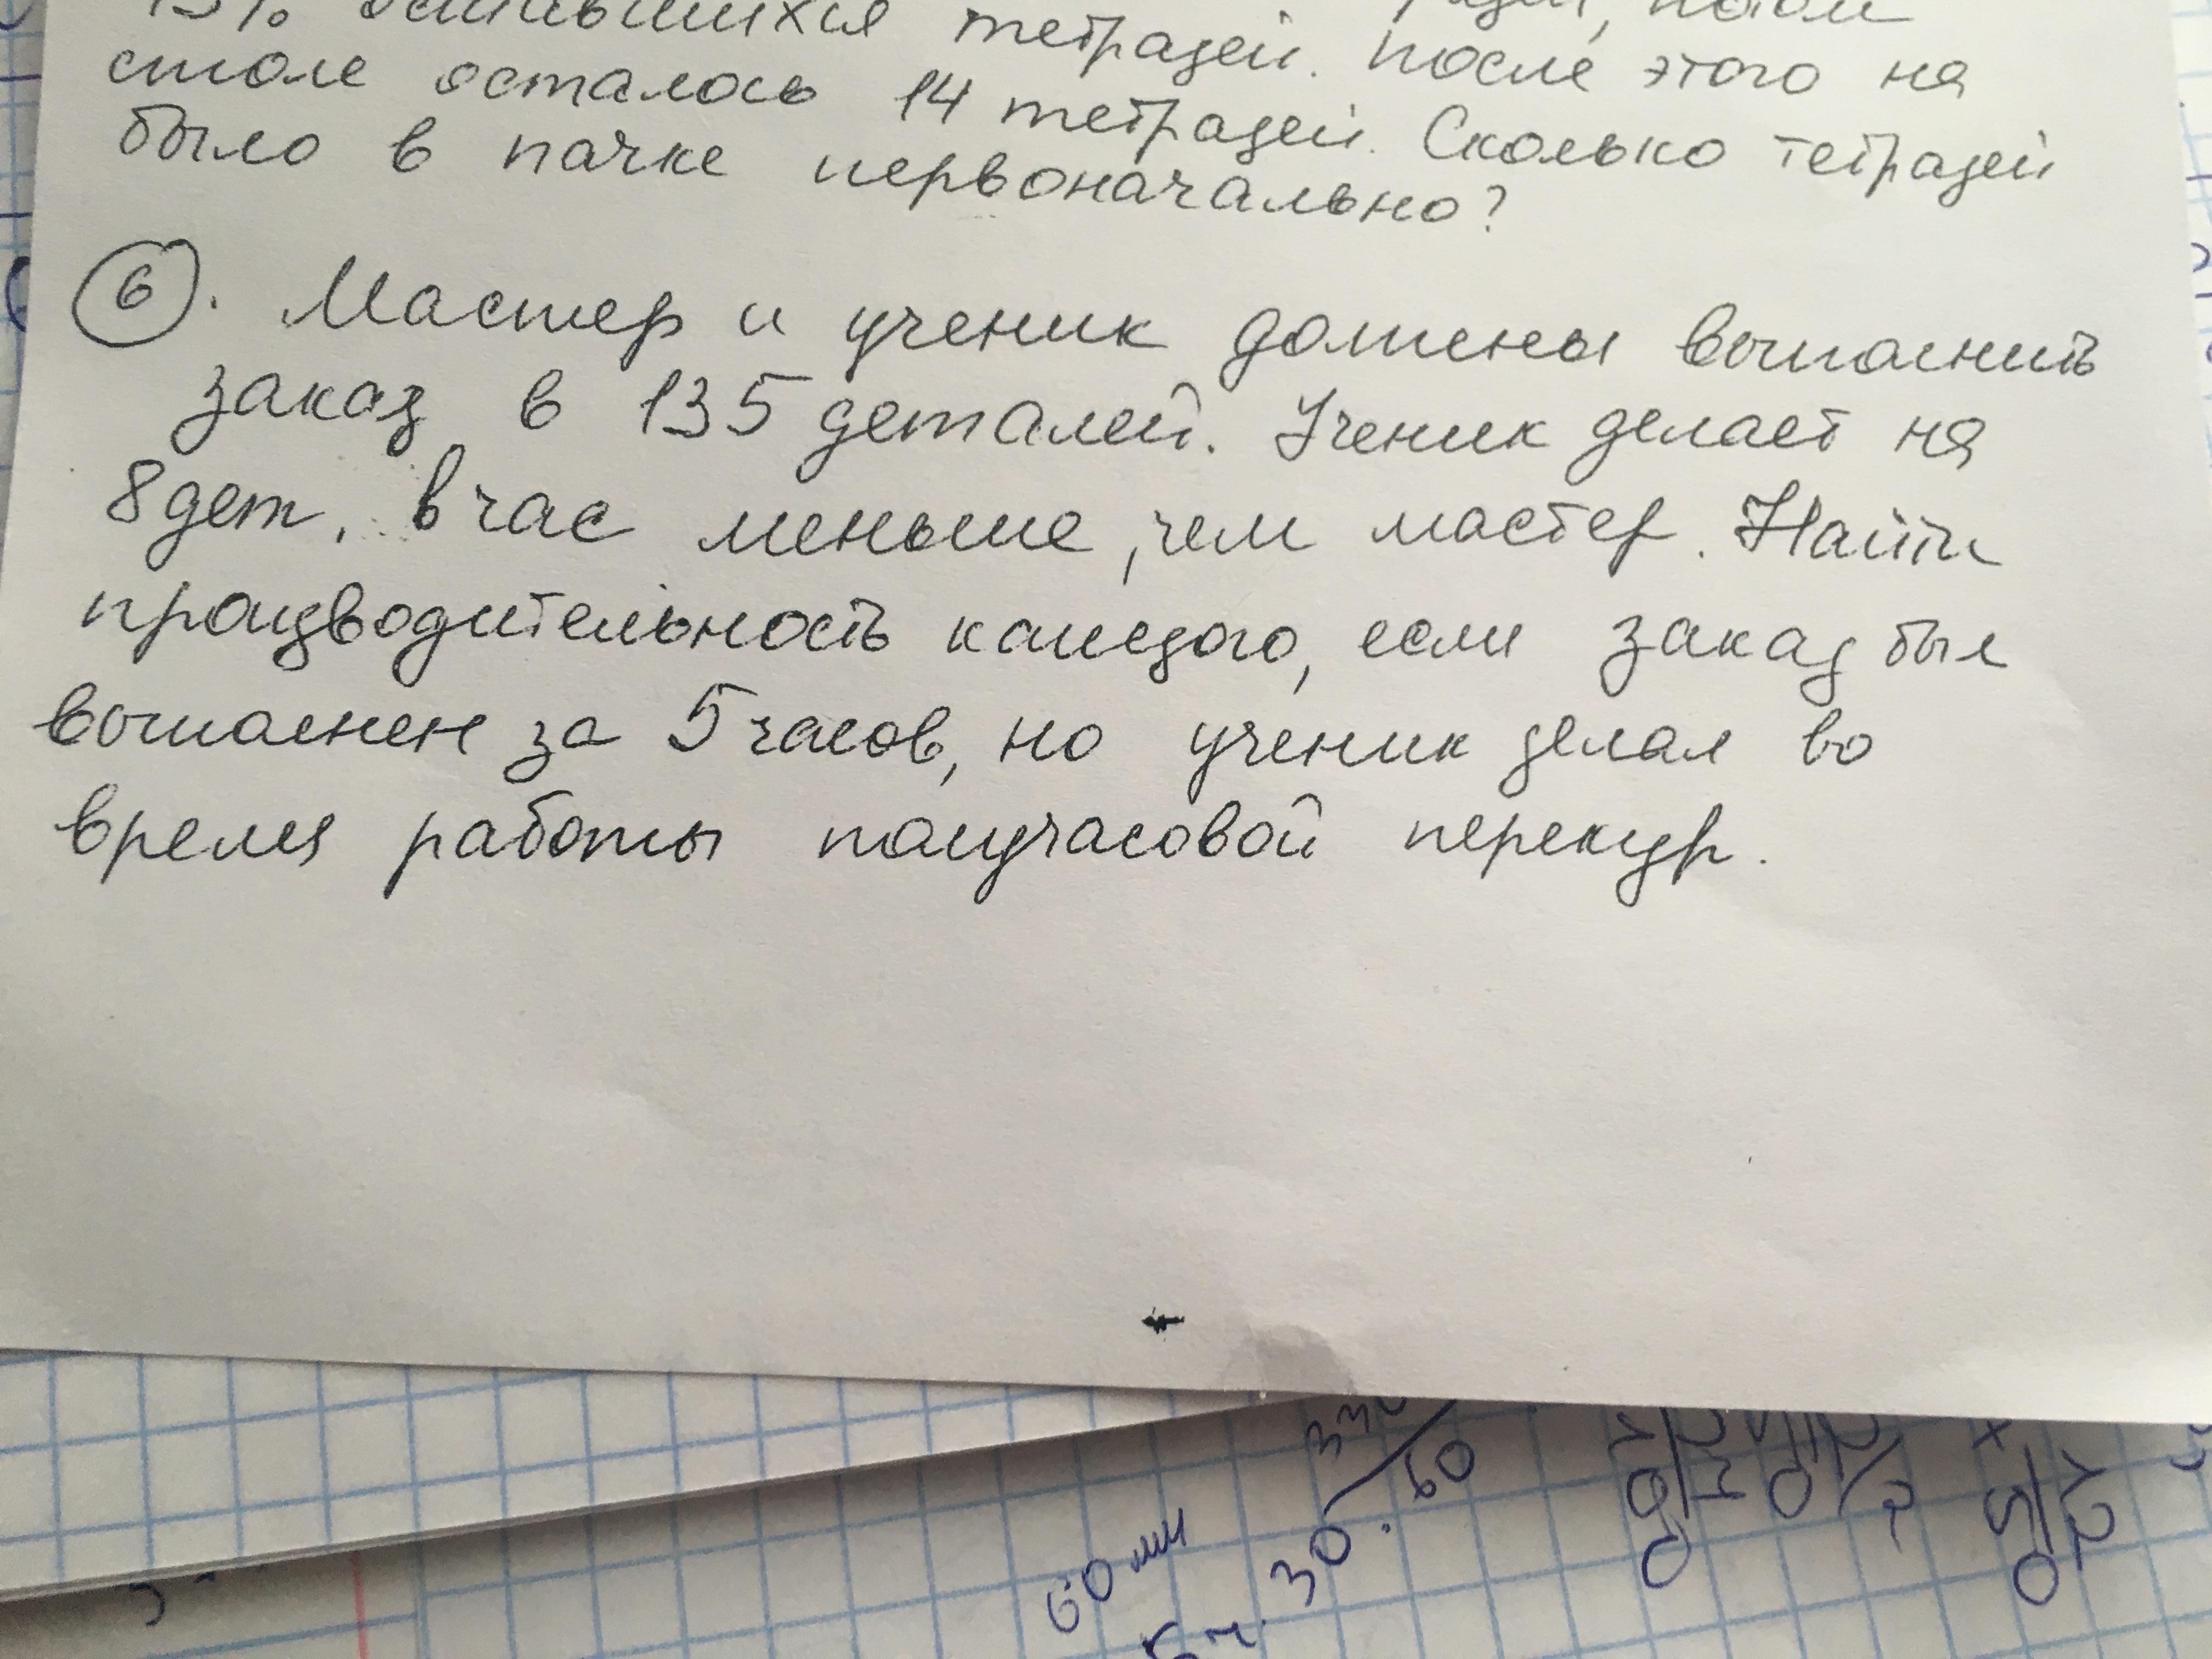 15% оставшихся тетрадей. После этого на
столе осталось 14 тетрадей. Сколько тетрадей
было в пачке первоначально?
6. Мастер и ученик должны выполнить
заказ в 135 деталей. Ученик делает на
8 дет. в час меньше, чем мастер. Найти
производительность каждого, если заказ был
выполнен за 5 часов, но ученик делал во
время работы получасовой перекур.
60 мин
5 ч. 30 . 60